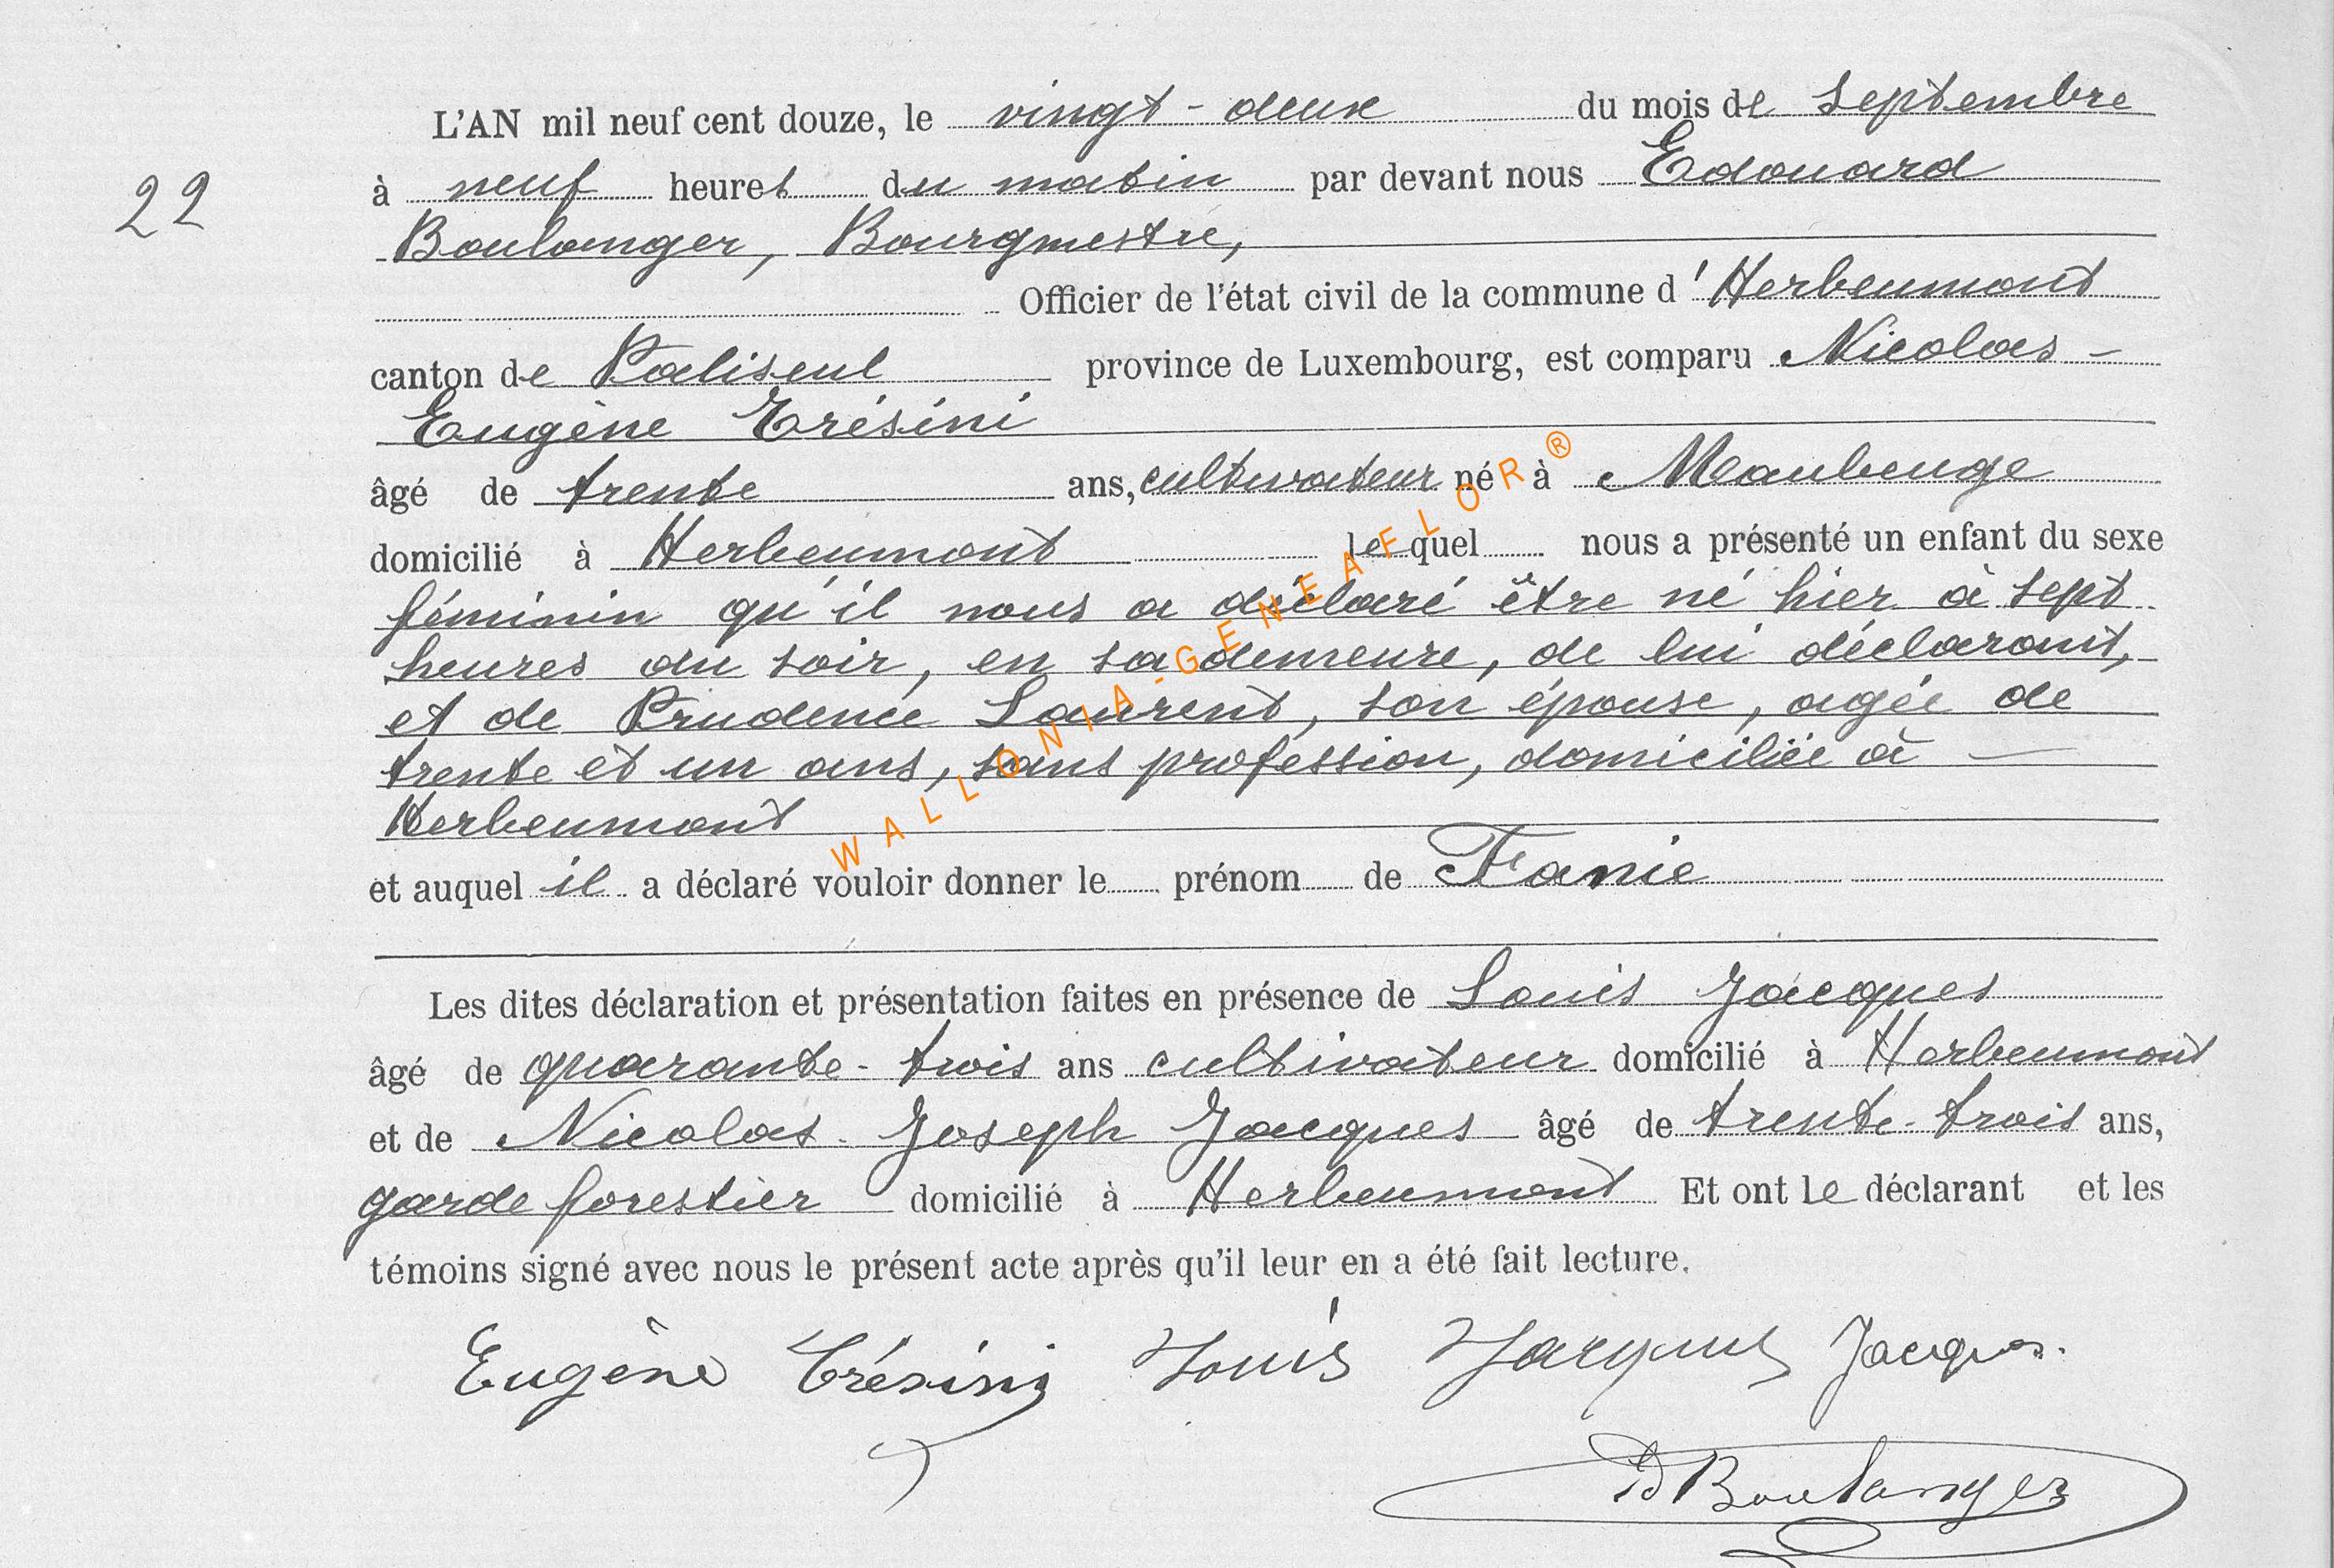 L'AN mil neuf cent douze, le vingt-deux du mois de Septembre
22
à neuf heures du matin par devant nous Edouard
Boulanger, Bourgmestre,
Officier de l'état civil de la commune d'Herbeumont
canton de Paliseul province de Luxembourg, est comparu Nicolas-
Eugène Trésini
âgé de trente ans, cultivateur né à Maubeuge
domicilié à Herbeumont lequel nous a présenté un enfant du sexe
féminin qu'il nous a déclaré être né hier à sept
heures du soir, en sa demeure, de lui déclarant,
et de Prudence Laurent, son épouse, agée de
trente et un ans, sans profession, domiciliée à —
Herbeumont
et auquel il a déclaré vouloir donner le prénom de Fanie
Les dites déclaration et présentation faites en présence de Louis Jacques
âgé de quarante-trois ans cultivateur domicilié à Herbeumont
et de Nicolas-Joseph Jacques âgé de trente-trois ans,
garde forestier domicilié à Herbeumont Et ont le déclarant et les
témoins signé avec nous le présent acte après qu'il leur en a été fait lecture.
Eugène Trésini Louis Jacques Jacques.
Boulanger
WALLONIA-GENEAFLOR®